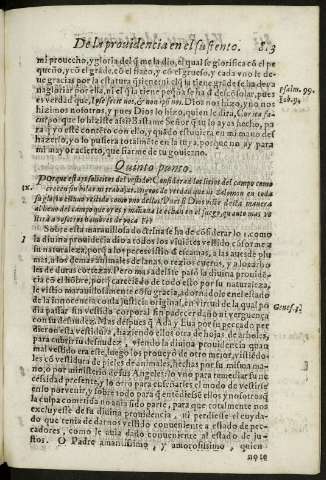 De la prouidencia en el sustento. 83
mi prouecho, y gloria del q̃ me la dio, el qual se glorifica cõ el pe
queño, y cõ el grande, cõ el flaco, y cõ el grueso, y cada vno le de-
ue gracias por la estatura
na gloriar por ella, ni el q̃ la tiene peq̃ña se ha de descõsolar, pues
es verdad que, Ipse fecit nos, & non ipsi nos. Dios nos hizo, y no nos
hizimos nosotros, y pues Dios lo hizo, quien le dira, Cur me fa-
q̃ yo este contẽto con ello, y quãdo estuuiera en mi mano des-
hazerlo, yo lo pusiera totalmẽte en la tuya, porque no ay para
mi mayor acierto, que fiarme de tu gouierno.
Psalm. 99.
Iob. 9.
Quinto punto.
IX.
Porque estays solicitos del vestido? Considerad los lirios del campo como
crecen sin hilar ni trabajar. Digoos de verdad que ni Salomon en toda
su gloria estaua vestido como vno dellos. Pues si Dios viste desta manera
al heno del campo que oy es y mañana le echan en el fuego, quanto mas ves
tira a vosotros hombres de poca Fè?
1
Sobre esta marauillosa doctrina se ha de cõsiderar lo 1. como
la diuina prouidencia dio a todos los viuiẽtes vestido cõforme a
su naturaleza,
mas, a los demas animales de lanas, o rezios cueros, y a los arbo-
les de duras cortezas. Pero mas adelãte pasò la diuina prouidẽ-
cia cõ el hõbre, porq̃ careciẽdo de todo esto por su naturaleza,
le vistio marauillosamente cõ su gracia, adornãdole en el estado
de la innocencia con la justicia original, en virtud de la qual po
dia passar sin vestido corporal sin padecer daño ni verguença
con su desnudez. Mas despues q̃ Adã, y Eua por su peccado per
dieron esta vestidura, haziendo ellos otra de hojas de arboles,
para cubrir su desnudez, viendo la diuina prouidencia quan
mal vestido era este, luego los proueyó de otro mejor, vistiẽdo-
les cõ vestidura de pieles de animales, hechas por su misma ma-
no, ò por ministerio de sus Angeles: lo vno para remediar su ne
cessidad presente, y lo otro para enseñarles el modo de vestirse
en lo porvenir, y sobre todo para q̃ entẽdiessẽ ellos y nosotros q̃
la culpa cometida no seria parte, para que totalmente nos
excluyesse de su diuina prouidencia, ni perdiesse el cuyda-
do que tenia de darnos vestido conueniente a estado de pec-
cadores, como le auia dado conueniente al estado de ju-
stos. O Padre amantissimo, y amorosissimo, quien
Genes. 3.